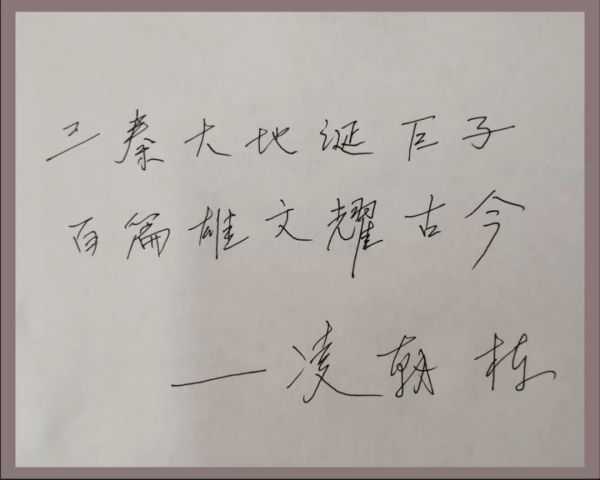 三秦大地诞巨子
百篇雄文耀古今
——凌朝栋